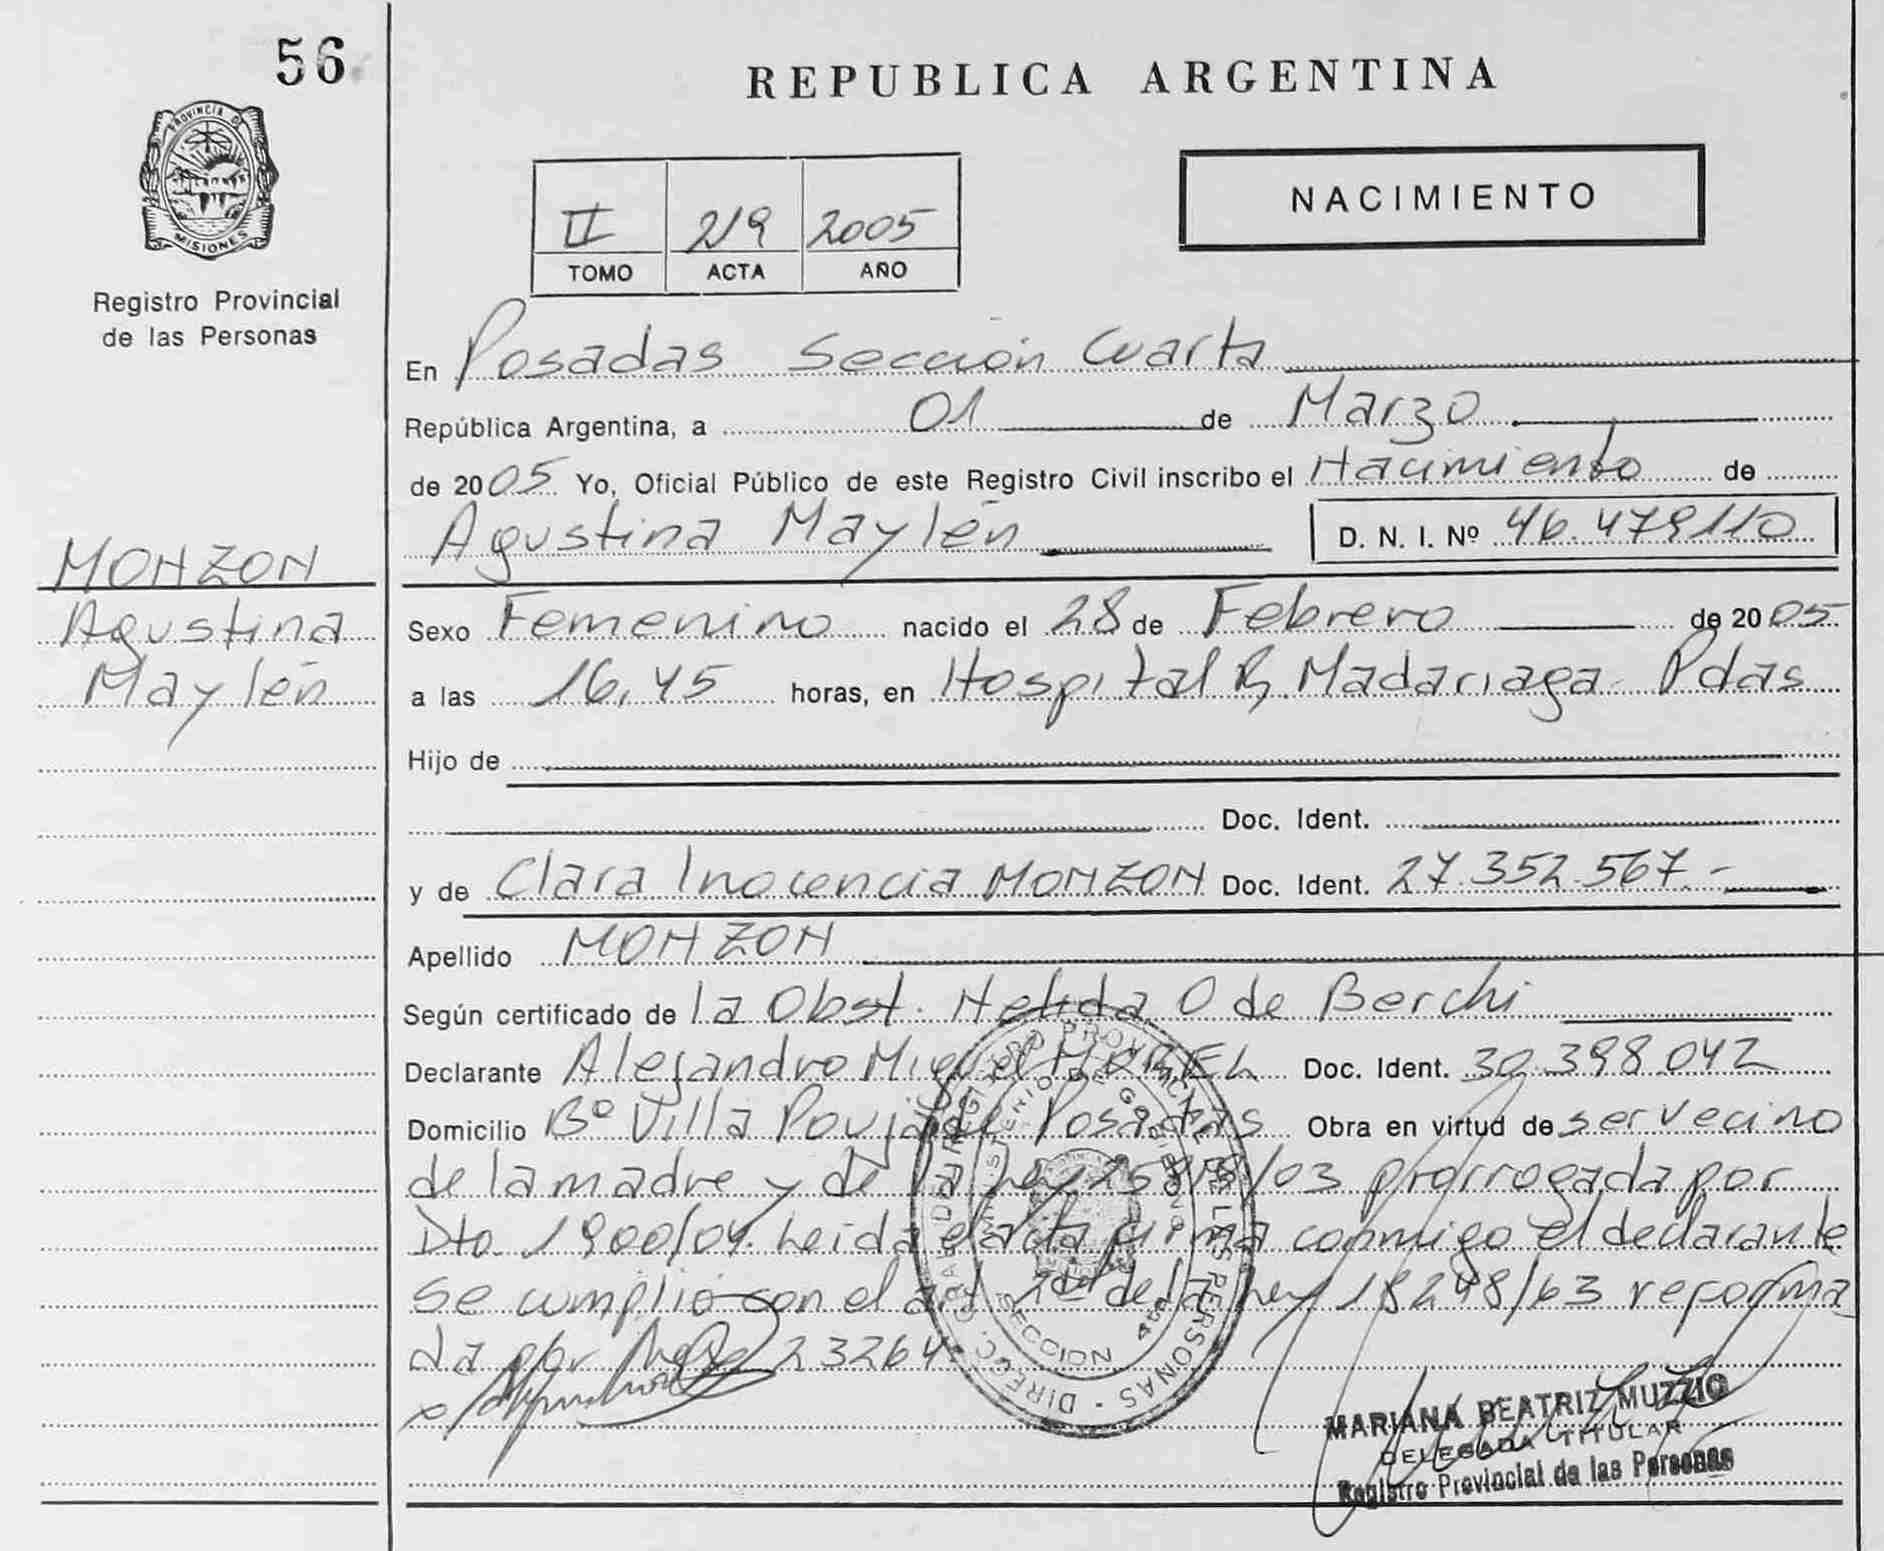 56
REPUBLICA ARGENTINA
PROVINCIA DE
MISIONES
Registro Provincial
de las Personas
NACIMIENTO
II 219 2005
TOMO ACTA AÑO
En Posadas Sección Cuarta
República Argentina, a 01 de Marzo
de 2005 Yo, Oficial Público de este Registro Civil inscribo el Nacimiento de
Agustina Maylén D. N. I. Nº 46.479110
MONZON
Agustina
Maylén
Sexo Femenino nacido el 28 de Febrero de 2005
a las 16,45 horas, en Hospital R. Madariaga Pdas
Hijo de
Doc. Ident.
y de Clara Inocencia MONZON Doc. Ident. 27.352.567.-
Apellido MONZON
Según certificado de la Obst. Nelida O de Berchi
Declarante Alejandro Miguel Doc. Ident. 30.398.042
Domicilio Bº Villa Poujade Posadas Obra en virtud de ser vecino
de la madre y de la Ley /03 prorrogada por
Dto 1900/04. Leida el acta firma conmigo el declarante
se cumplio con el art. de la Ley 18248/63 reforma
da por 23264.
DIRECC. GRAL. DEL REGISTRO PROVINCIAL DE LAS PERSONAS
MINISTERIO DE GOBIERNO
SECCION 4ta
MARIANA BEATRIZ MUZZIO
DELEGADA TITULAR
Registro Provincial de las Personas